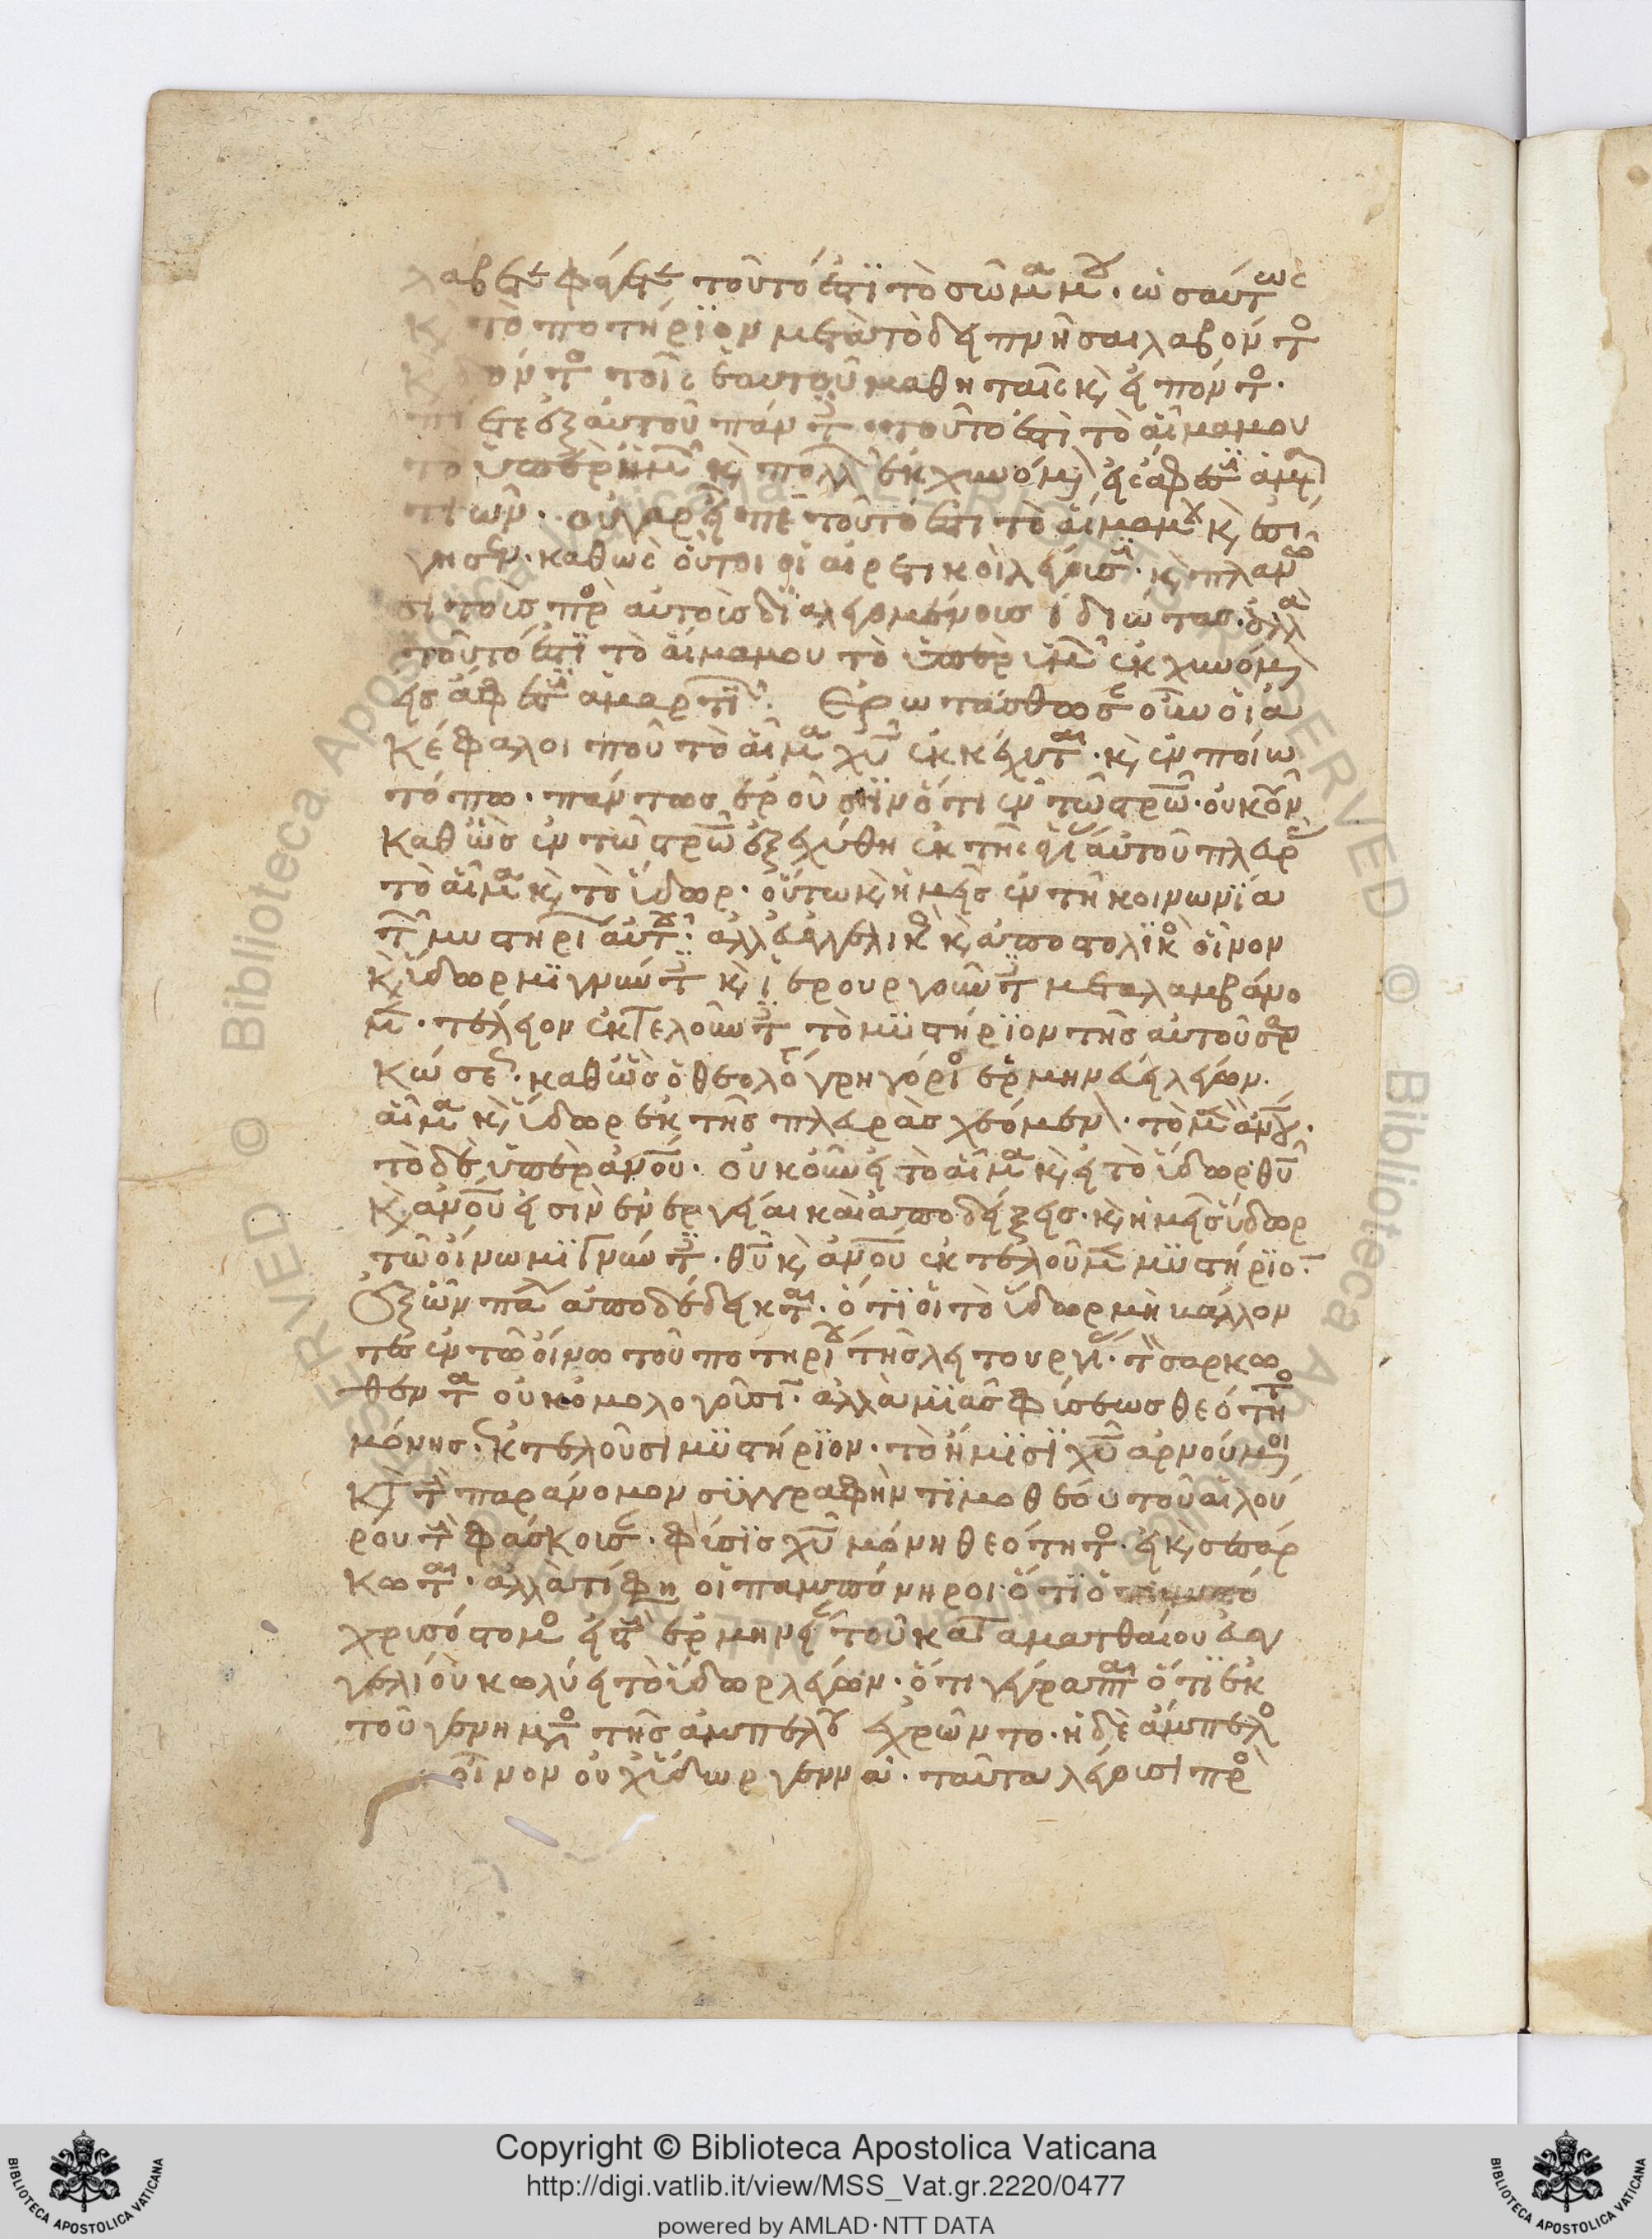 λάβετε φάγετε τοῦτό ἐστι τὸ σῶμά μου· ὡσαύτως
κ̀ τὸ ποτήριον μετὰ τὸ δειπνῆσαι λαβόντος
κ̀ δόντος τοῖς ἑαυτοῦ μαθηταῖς κ̀ εἰπόντος·
πίετε ἐξ αὐτοῦ πάντες τοῦτό ἐστι τὸ αἷμα μου
τὸ ὑπὲρ ὑμῶν κ̀ πολλῶν ἐκχυνόμενον εἰς ἄφεσιν ἁμαρ
τιῶν· οὐ γὰρ εἶπε τοῦτό ἐστι τὸ αἷμα μου κ̀ ἐσί
γησεν· καθὼς οὗτοι οἱ αἱρετικοὶ λέγουσιν· κ̀ πλανῶ
σι τοὺς πρὸς αὐτοῖς διαλεγομένους ἰδιώτας· ἀλλὰ
τοῦτό ἐστι τὸ αἷμα μου τὸ ὑπὲρ ὑμῶν ἐκχυνόμενον
εἰς ἄφεσιν ἁμαρτιῶν· Ἐρωτάσθωσαν οὖν οἱ ἀ
κέφαλοι ποῦ τὸ αἷμα χυ ἐκκέχυται· κ̀ ἐν ποίω
τόπω· πάντως ἐροῦσιν ὅτι ἐν τῶ στρω· οὐκοῦν
καθὼς ἐν τῶ στρω ἐξεχύθη ἐκ τῆς ἁγίας αὐτοῦ πλευρᾶς
τὸ αἷμα κ̀ τὸ ὕδωρ· οὕτω κ̀ ἡμεῖς ἐν τῆ κοινωνία
τῶν μυστηρίων αὐτοῦ· ἀλλ' εὐαγγελικῶς κ̀ ἀποστολικῶς οἶνον
κ̀ ὕδωρ μιγνύντες κ̀ ἱερουργοῦντες μεταλαμβάνο
μεν· τέλειον ἐκτελοῦντες τὸ μυστήριον τῆς αὐτοῦ σαρ
κώσεως· καθὼς ὁ θεολόγος γρηγόριος ἑρμηνεύει λέγων·
αἷμα κ̀ ὕδωρ ἐκ τῆς πλευρᾶς χεόμενον· τὸ μὲν ὡς ἀνου·
τὸ δὲ ὑπὲρ ἀνον· οὐκοῦν εἰ τὸ αἷμα κ̀ εἰ τὸ ὕδωρ θυ
κ̀ ἀνου εἰσὶν ἐνέργειαι καὶ ἀποδείξεις· κ̀ ἡμεῖς ὕδωρ
τῶ οἴνω μιγνύντες· θυ κ̀ ἀνου ἐκτελοῦμεν μυστήριον·
Ἐξ ὧν πάλιν ἀποδέδεικται· ὅτι οἱ τὸ ὕδωρ μὴ βάλλον
τες ἐν τῶ οἴνω τοῦ ποτηρίου τῆς λειτουργίας· τὸν σαρκω
θέντα οὐκ ὁμολογοῦσιν· ἀλλὰ μιᾶς φύσεως θεότητος
μόνης· ἐκτελοῦσι μυστήριον· τὸ ἥμισυ χυ ἀρνούμενοι
κ̀ τὴν παράνομον συγγραφὴν τιμοθέου τοῦ αἰλού
ρου τὴν φάσκουσαν· φύσις χυ μόνη θεότητος· εἰ κ̀ σεσάρ
κωται· ἀλλὰ τί φη οἱ παμπόνηροι· ὅτι ὁ
χρισόστομος εἰς τὴν ἑρμηνείαν τοῦ κατὰ ματθαίου εὐαγ
γελίου κωλύει τὸ ὕδωρ λέγων· ὅτι γέγραπται ὅτι ἐκ
τοῦ γεννήματος τῆς ἀμπέλου ἐχρῶντο· ἡ δὲ ἄμπελος
οἶνον οὐχ ὕδωρ γεννᾶ· ταῦτα λέγουσι πρὸς